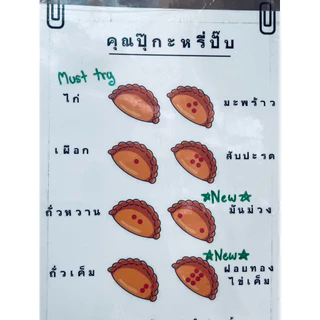 คุณปุ๊กะหรี่ปั๊บ
Must try
ไก่
มะพร้าว
เผือก
สับปะรด
ถั่วหวาน
★New★
มันม่วง
ถั่วเค็ม
★New★
ฝอยทอง
ไข่เค็ม